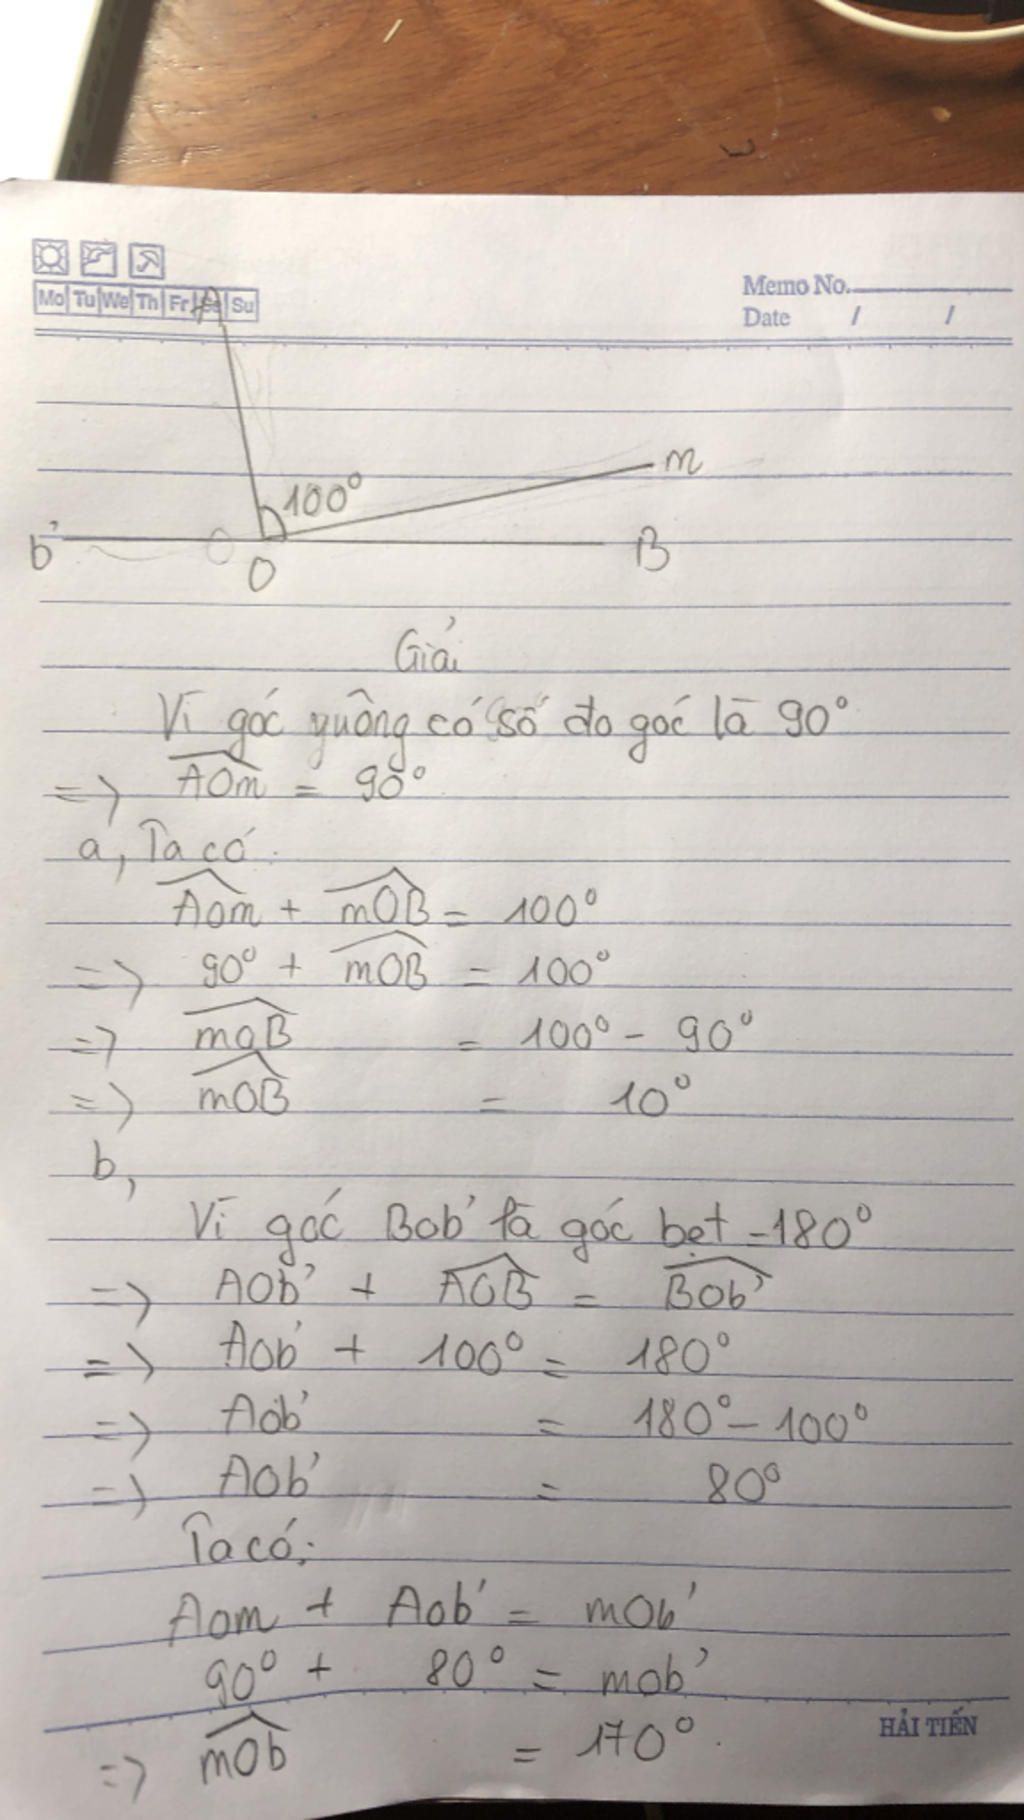 Mo Tu We Th Fr Su
Memo No.
Date / /
A
100°
m
b'
O
B
Giải
Vì góc vuông có số đo góc là 90°
=> AOm = 90°
a, Ta có:
AOm + mOB = 100°
=> 90° + mOB = 100°
=> mOB = 100° - 90°
=> mOB = 10°
b,
Vì góc Bob' là góc bẹt = 180°
=> AOb' + AOB = BOb'
=> AOb' + 100° = 180°
=> AOb' = 180° - 100°
=> AOb' = 80°
Ta có:
AOm + AOb' = mOb'
90° + 80° = mob'
HẢI TIẾN
=> mOb = 170°.